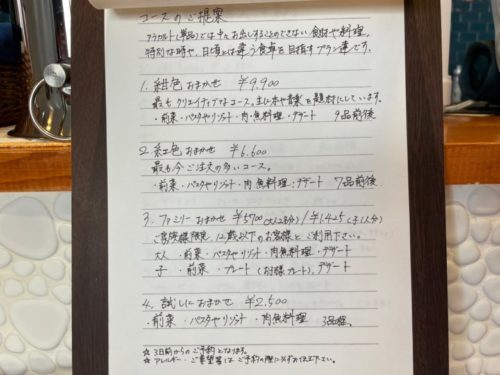 コースのご提案
アラカルト(単品)では中々お出しすることのできない食材や料理。
特別な時や、日頃とは違う食卓を目指すプラン達です。
1. 紺色おまかせ ¥9,900
最もクリエイティブなコース。主に本や音楽を題材にしています。
・前菜・パスタやリゾット・肉・魚料理・デザート 9品前後
2. 紅色おまかせ ¥6,600
最も今ご注文の多いコース。
・前菜・パスタやリゾット・肉魚料理・デザート 7品前後
3. ファミリーおまかせ ¥5700(大人2名分)/¥1,425(子1人分)
ご家族様限定、12歳以下のお客様とご利用下さい。
大人・前菜・パスタやリゾット・肉魚料理・デザート
子・前菜・プレート(お子様プレート)、デザート
4. 試しにおまかせ ¥2,500
・前菜・パスタやリゾット・肉魚料理 3品程。
☆ 3日前からのご予約となります。
☆ アレルギー・ご要望等はご予約の際に必ずお伝え下さい。